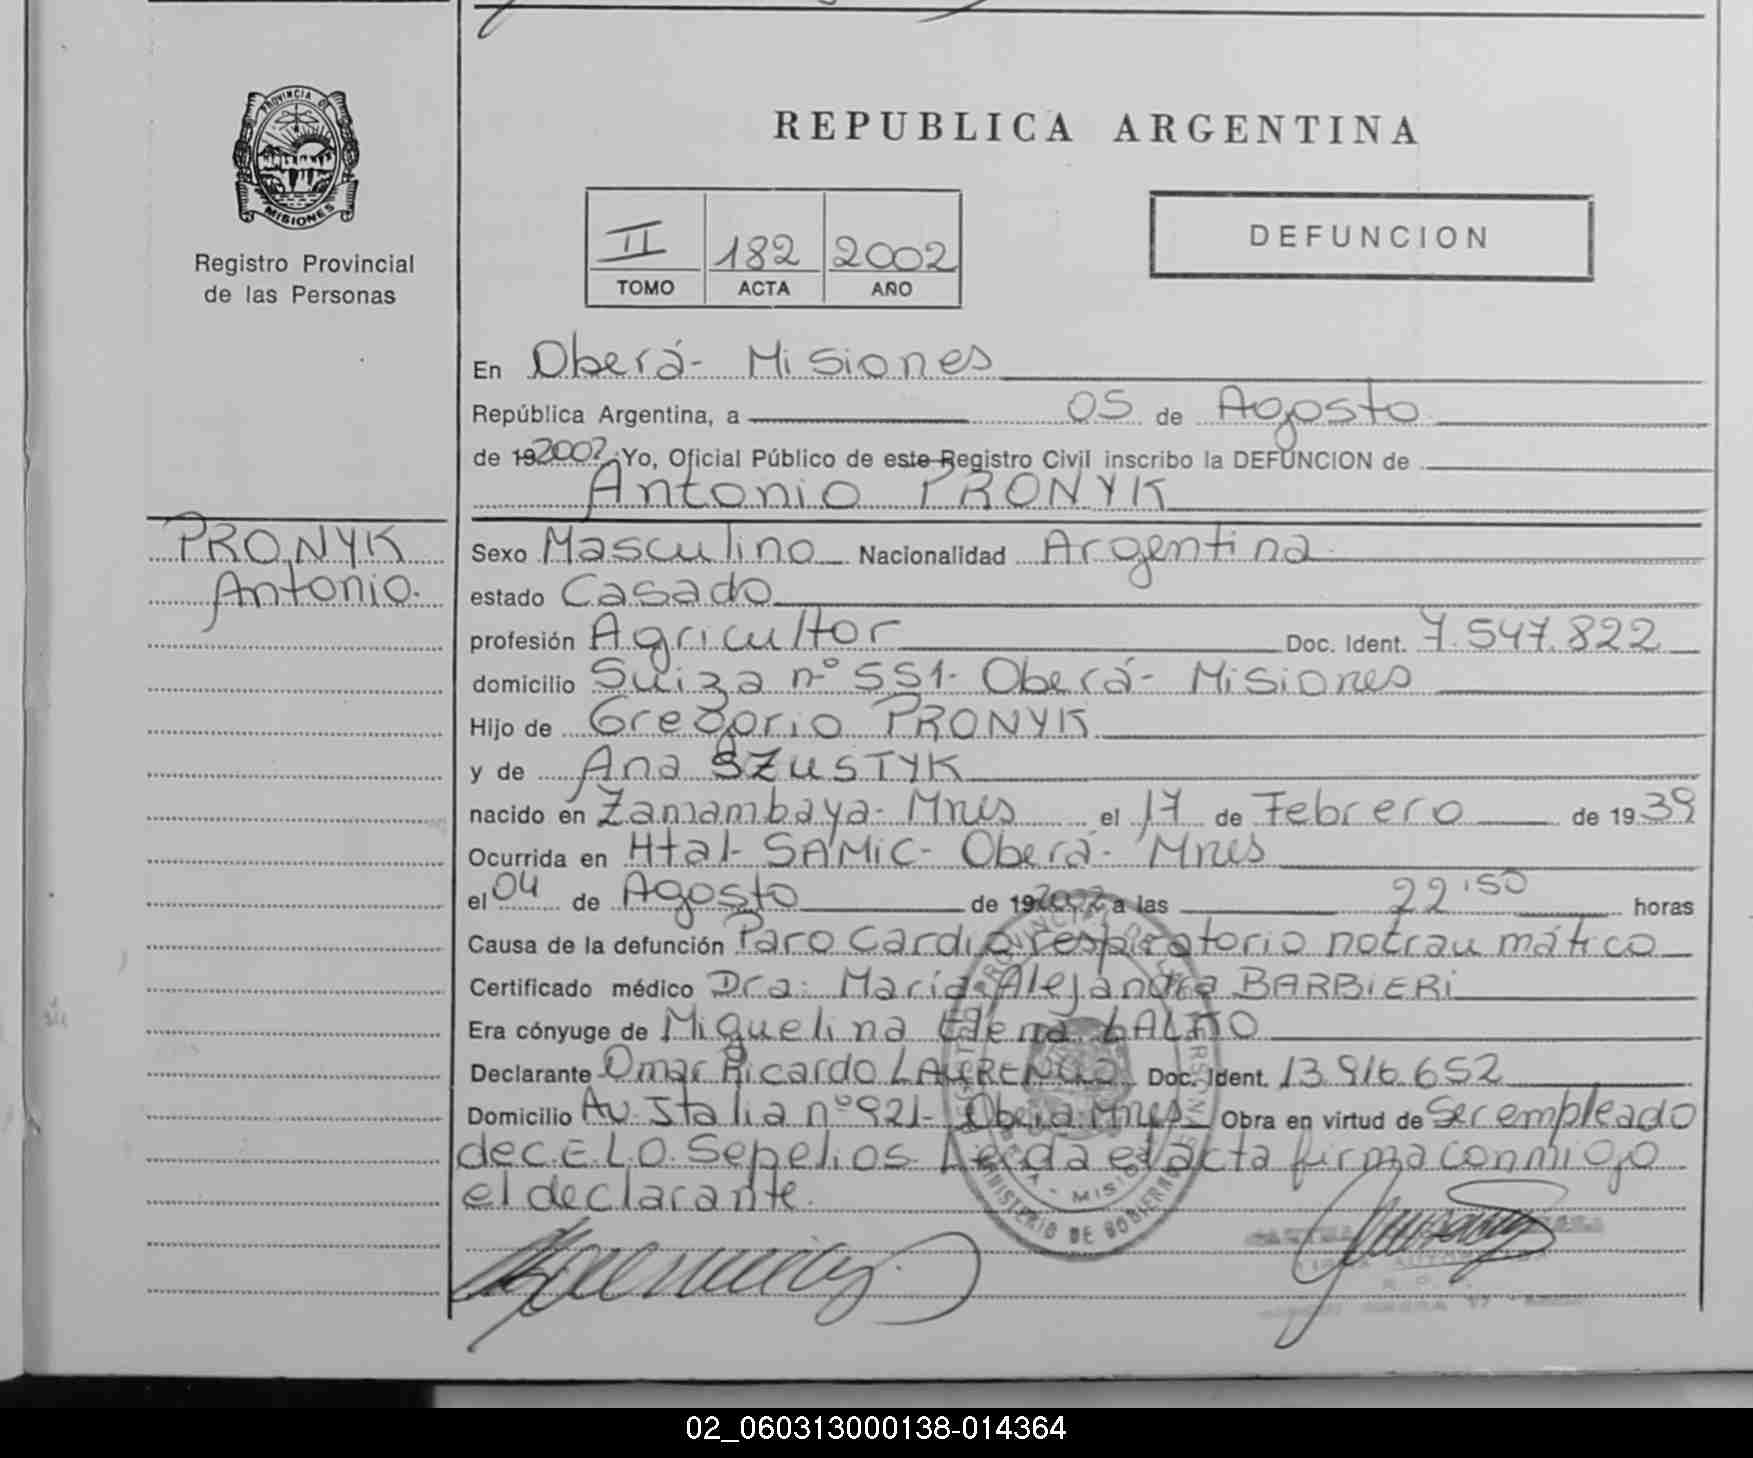 PROVINCIA DE
MISIONES
Registro Provincial
de las Personas
REPUBLICA ARGENTINA
II 182 2002
TOMO ACTA AÑO
DEFUNCION
En Oberá- Misiones
República Argentina, a 05 de Agosto
de 192002 Yo, Oficial Público de este Registro Civil inscribo la DEFUNCION de
Antonio PRONYK
PRONYK
Antonio.
Sexo Masculino Nacionalidad Argentina
estado Casado
profesión Agricultor Doc. Ident. 7.547.822
domicilio Suiza nº 551- Oberá- Misiones
Hijo de Gregorio PRONYK
y de Ana SZUSTYK
nacido en Zamambaya- Mnes el 17 de Febrero de 1939
Ocurrida en Htal- SAMIC- Oberá- Mnes
el 04 de Agosto de 192002 a las 22'50 horas
Causa de la defunción Paro Cardiorespiratorio notraumático
Certificado médico Dra: María Alejandra BARBIERI
Era cónyuge de Miguelina Elena
Declarante Omar Ricardo LAURENCIO Doc. Ident. 13.916.652
Domicilio Av. Italia nº 921- Oberá Mnes Obra en virtud de Ser empleado
de C.E.L.O. Sepelios. Leída el acta firma conmigo
el declarante.
MINISTERIO DE GOBIERNO
02_060313000138-014364